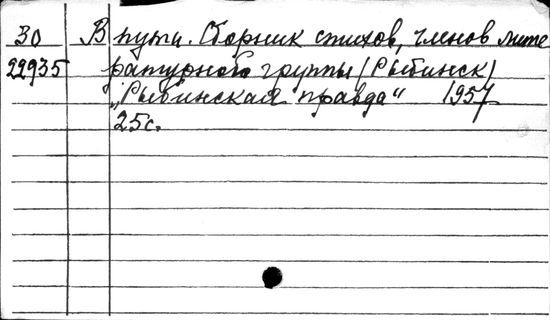 30 В пути. Сборник стихов, членов лите
22935 ратурной группы (Рыбинск)
„Рыбинская правда“ 1957
25с.